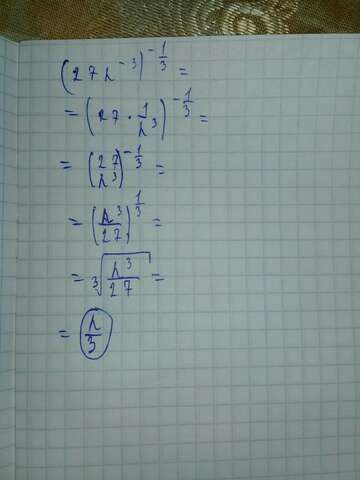 (27h⁻³)^(-1/3) =
= (27 · 1/h³)^(-1/3) =
= (27/h³)^(-1/3) =
= (h³/27)^(1/3) =
= ∛(h³/27) =
= h/3